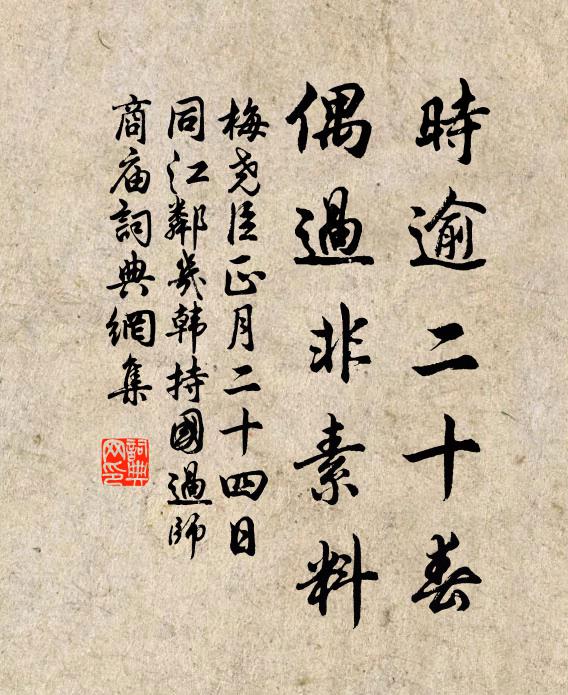 時逾二十春
偶過非素料
梅尧臣正月二十四日
同江鄰幾韩持國過師
商庙詞典網集
詞典网印